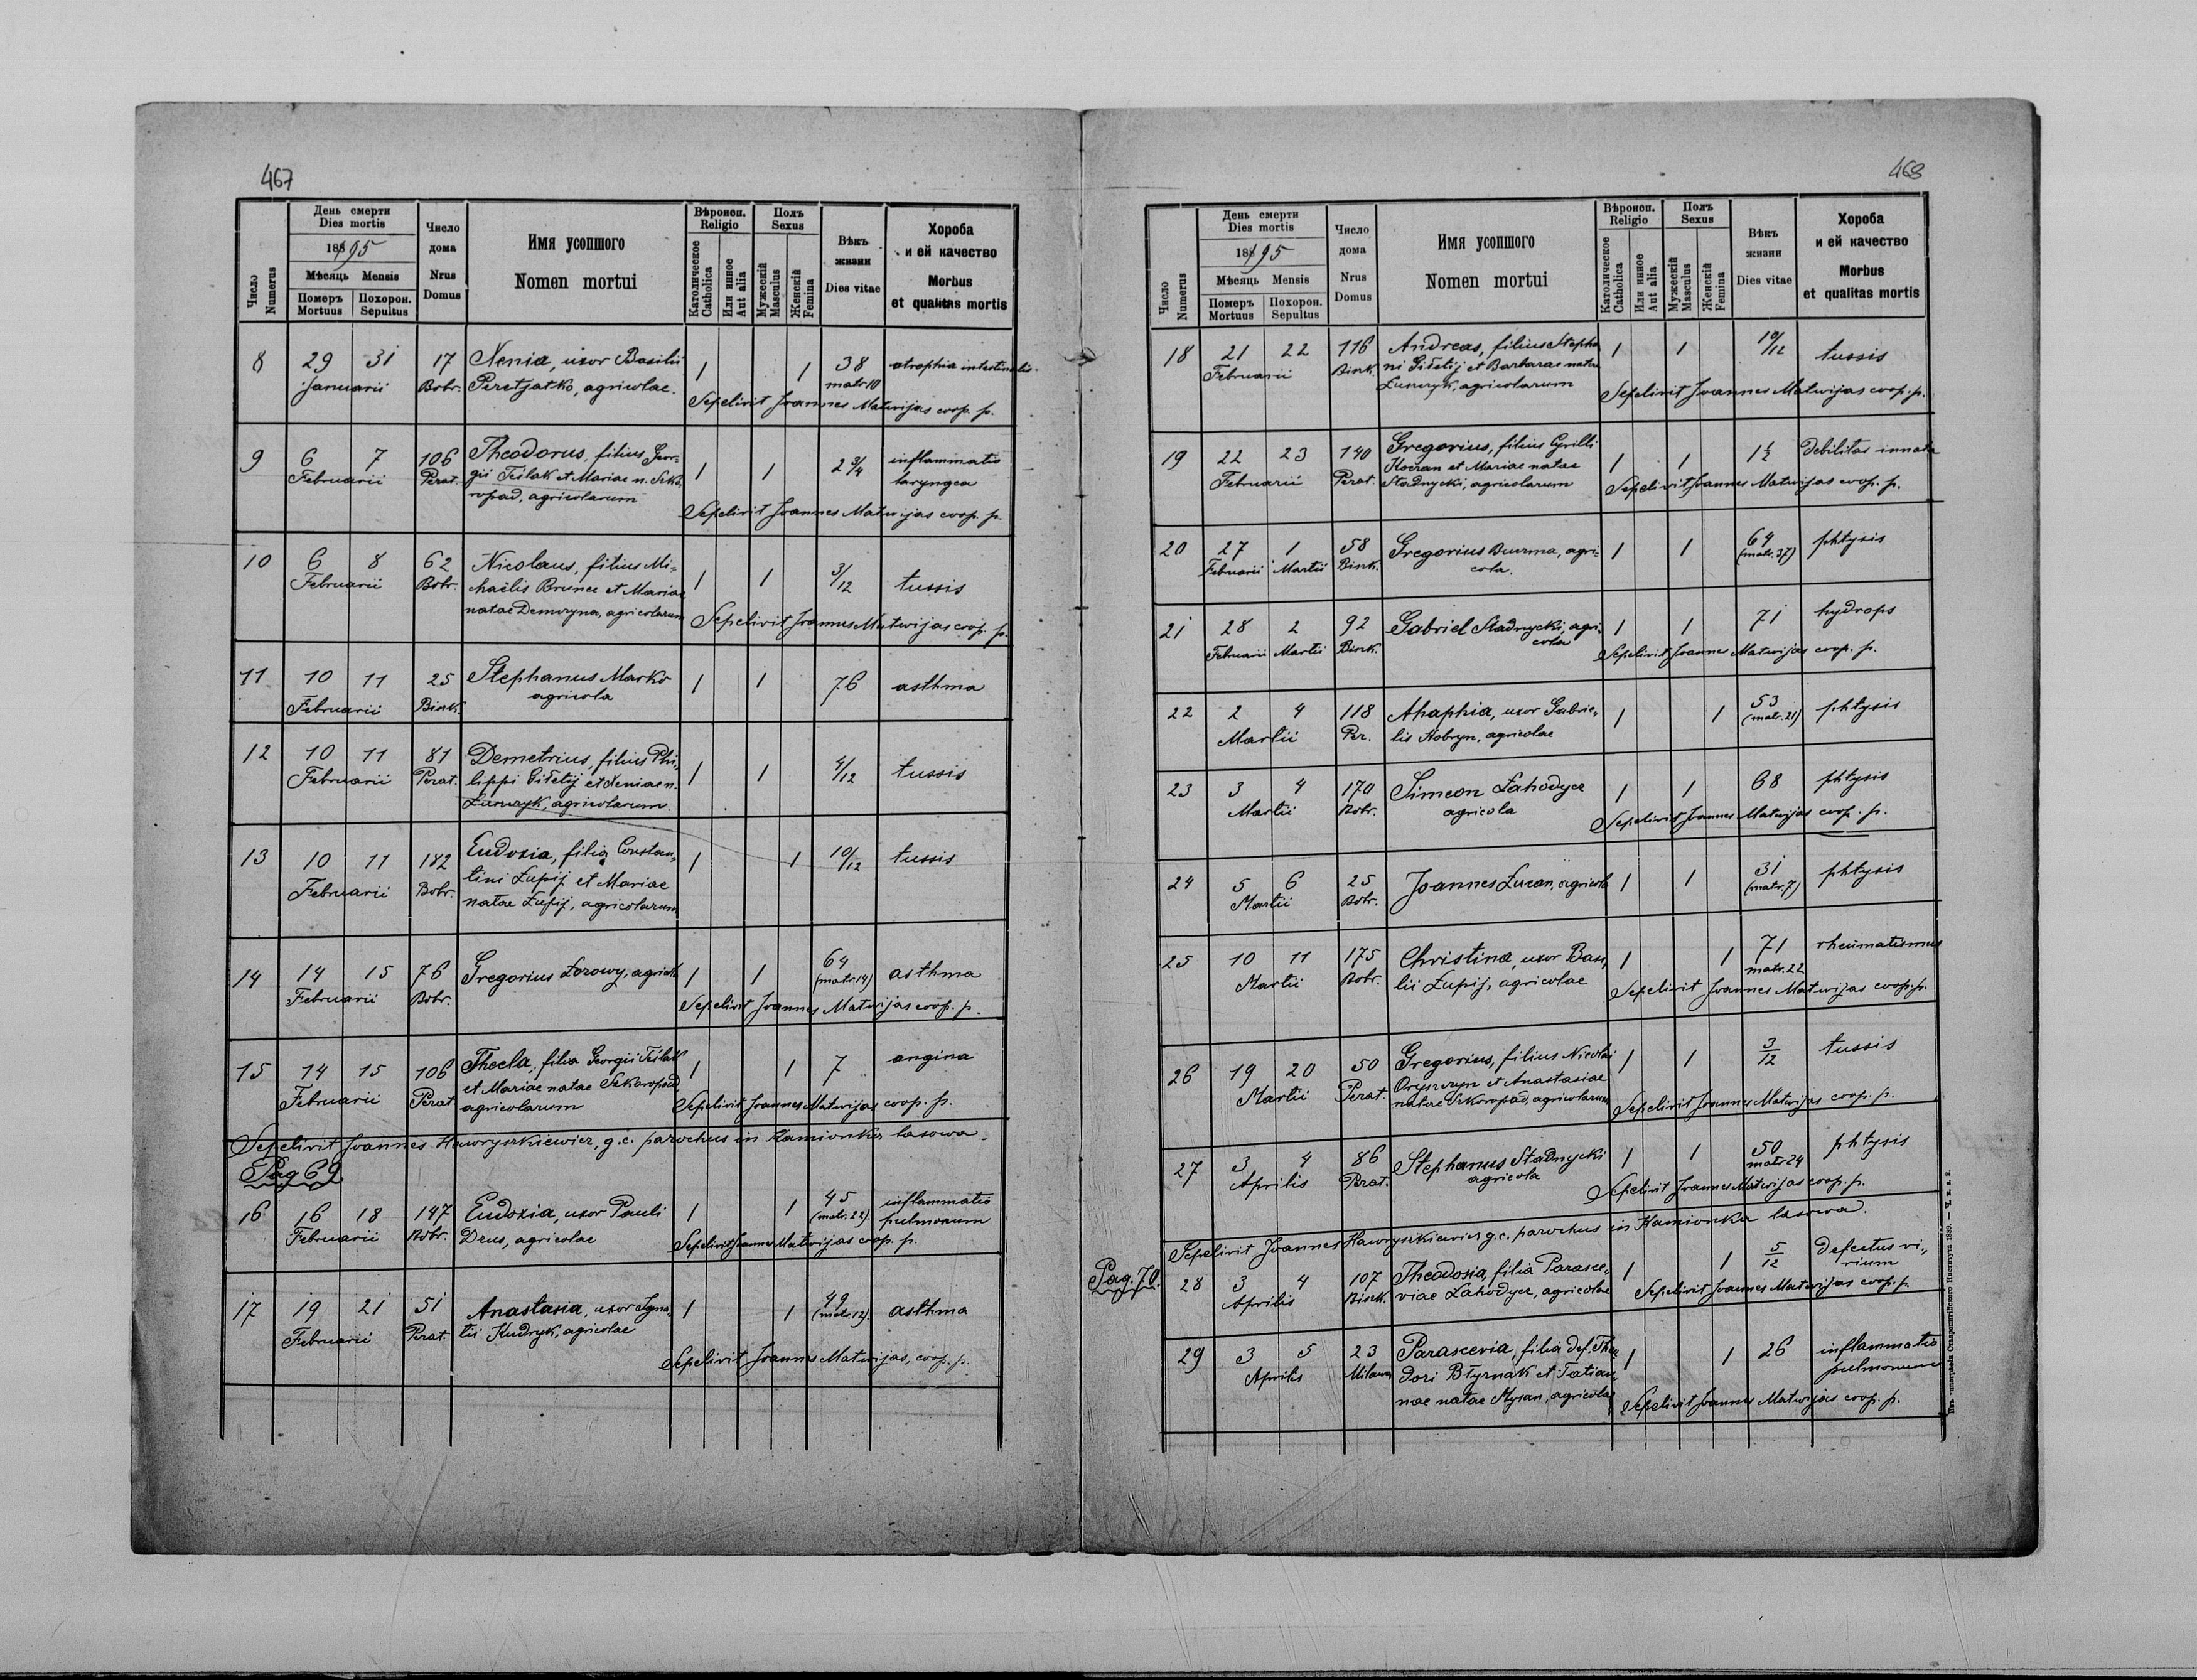 467
Число Numerus
День смерти
Dies mortis
1895
Мѣсяць Mensis
Померъ Mortuus
Похорон. Sepultus
Число дома
Nrus Domus
Имя усопшого
Nomen mortui
Вѣроисп.
Religio
Католическое Catholica
Или инное Aut alia
Полъ
Sexus
Мужескій Masculus
Женскій Femina
Вѣкъ жизни
Dies vitae
Хороба
и ей качество
Morbus
et qualitas mortis
8 29 31 17 Xenia, uxor Basilii 1 1 38 atrophia intestinalis
Januarii Bobr. Peretjatko, agricolae. matr. 10
Sepelivit Joannes Matwijas coop. p.
9 6 7 106 Theodorus, filius Geor- 1 1 2 3/4 inflammatio
Februarii Perat. gii Teslak et Mariae n. Sko- laryngea
ropad, agricolarum
Sepelivit Joannes Matwijas coop. p.
10 6 8 62 Nicolaus, filius Mi= 1 1 3/12 tussis
Februarii Bobr. chaëlis Brunec et Mariae
natae Demczyna, agricolarum
Sepelivit Joannes Matwijas coop. p.
11 10 11 25 Stephanus Marko 1 1 76 asthma
Februarii Bisk. agricola
12 10 11 81 Demetrius, filius Phi- 1 1 4/12 tussis
Februarii Perat. lippi Giłetij et Xeniae n.
agricolarum.
13 10 11 182 Eudoxia, filia Constan- 1 1 10/12 tussis
Februarii Bobr. tini Łupij et Mariae
natae Łupij, agricolarum
14 14 15 76 Gregorius Łozowy, agricola 1 1 64 asthma
Februarii Bobr. (matr. 14)
Sepelivit Joannes Matwijas coop. p.
15 14 15 106 Thecla, filia Georgii Teslak 1 1 7 angina
Februarii Perat. et Mariae natae Skoropad,
agricolarum
Sepelivit Joannes Matwijas coop. p.
Sepelivit Joannes Hawryszkiewicz, g. c. parochus in Kamionka lasowa.
Pag 69
16 16 18 147 Eudoxia, uxor Pauli 1 1 45 inflammatio
Februarii Bobr. Deus, agricolae (matr. 22). pulmonum
Sepelivit Joannes Matwijas coop. p.
17 19 21 51 Anastasia, uxor Igna- 1 1 49 asthma
Februarii Perat. tii Kudryk, agricolae (matr. 12).
Sepelivit Joannes Matwijas, coop. p.
468
Число Numerus
День смерти
Dies mortis
1895
Мѣсяць Mensis
Померъ Mortuus
Похорон. Sepultus
Число дома
Nrus Domus
Имя усопшого
Nomen mortui
Вѣроисп.
Religio
Католическое Catholica
Или инное Aut alia
Полъ
Sexus
Мужескій Masculus
Женскій Femina
Вѣкъ жизни
Dies vitae
Хороба
и ей качество
Morbus
et qualitas mortis
18 21 22 116 Andreas, filius Stepha 1 1 10/12 tussis
Februarii Bisk. ni Giłetij et Barbarae natae
agricolarum
Sepelivit Joannes Matwijas coop. p.
19 22 23 140 Gregorius, filius Cyrilli 1 1 1½ Debilitas innata
Februarii Perat. Kocran et Mariae natae
Stadnycki, agricolarum
Sepelivit Joannes Matwijas coop. p.
20 27 1 58 Gregorius Buurma, agri= 1 1 64 phtysis
Februarii Martii Bisk. cola. (matr. 37)
21 28 2 92 Gabriel Stadnycki, agri- 1 1 71 hydrops
Februarii Martii Bisk. cola
Sepelivit Joannes Matwijas coop. p.
22 2 4 118 Ahaphia, uxor Gabrie- 1 1 53 phtysis
Martii Per. lis Kobryn, agricolae (matr. 21)
23 3 4 170 Simeon Łahodycz 1 1 68 phtysis
Martii Bobr. agricola
Sepelivit Joannes Matwijas coop. p.
24 5 6 25 Joannes Łucan, agricola 1 1 31 phtysis
Martii Bobr. (matr. 7)
25 10 11 175 Christina, uxor Basi- 1 1 71 rheumatismus
Martii Bobr. lii Łupij, agricolae matr. 22
Sepelivit Joannes Matwijas coop. p.
26 19 20 50 Gregorius, filius Nicolai 1 1 3/12 tussis
Martii Perat. Oryszczyn et Anastasiae
natae Skoropad, agricolarum
Sepelivit Joannes Matwijas coop. p.
27 3 4 86 Stephanus Stadnycki 1 1 50 phtysis
Aprilis Perat. agricola matr 24
Sepelivit Joannes Matwijas coop. p.
Sepelivit Joannes Hawryszkiewicz g. c. parochus in Kamionka lasowa.
Pag. 70.
28 3 4 107 Theodosia, filia Parasce- 1 1 5/12 Defectus vi-
Aprilis Bisk. viae Łahodycz, agricolae rium
Sepelivit Joannes Matwijas coop. p
29 3 5 23 Parascevia, filia def. Theo 1 1 26 inflammatio
Aprilis Milanow dori Błyrnak et Tatian- pulmonum
nae natae Mysan, agricolae
Sepelivit Joannes Matwijas coop. p.
Изъ типографіи Ставропигійского Института 1889.